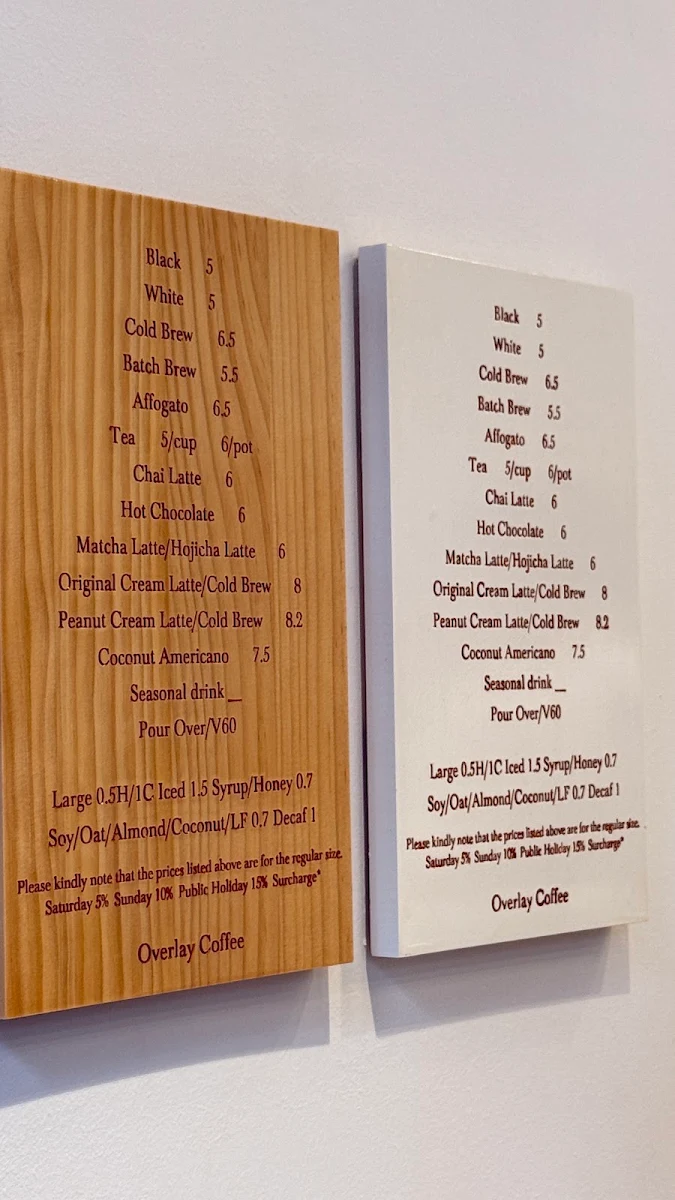 Black 5
White 5
Cold Brew 6.5
Batch Brew 5.5
Affogato 6.5
Tea 5/cup 6/pot
Chai Latte 6
Hot Chocolate 6
Matcha Latte/Hojicha Latte 6
Original Cream Latte/Cold Brew 8
Peanut Cream Latte/Cold Brew 8.2
Coconut Americano 7.5
Seasonal drink __
Pour Over/V60
Large 0.5H/1C Iced 1.5 Syrup/Honey 0.7
Soy/Oat/Almond/Coconut/LF 0.7 Decaf 1
Please kindly note that the prices listed above are for the regular size.
Saturday 5% Sunday 10% Public Holiday 15% Surcharge*
Overlay Coffee
Black 5
White 5
Cold Brew 6.5
Batch Brew 5.5
Affogato 6.5
Tea 5/cup 6/pot
Chai Latte 6
Hot Chocolate 6
Matcha Latte/Hojicha Latte 6
Original Cream Latte/Cold Brew 8
Peanut Cream Latte/Cold Brew 8.2
Coconut Americano 7.5
Seasonal drink __
Pour Over/V60
Large 0.5H/1C Iced 1.5 Syrup/Honey 0.7
Soy/Oat/Almond/Coconut/LF 0.7 Decaf 1
Please kindly note that the prices listed above are for the regular size.
Saturday 5% Sunday 10% Public Holiday 15% Surcharge*
Overlay Coffee